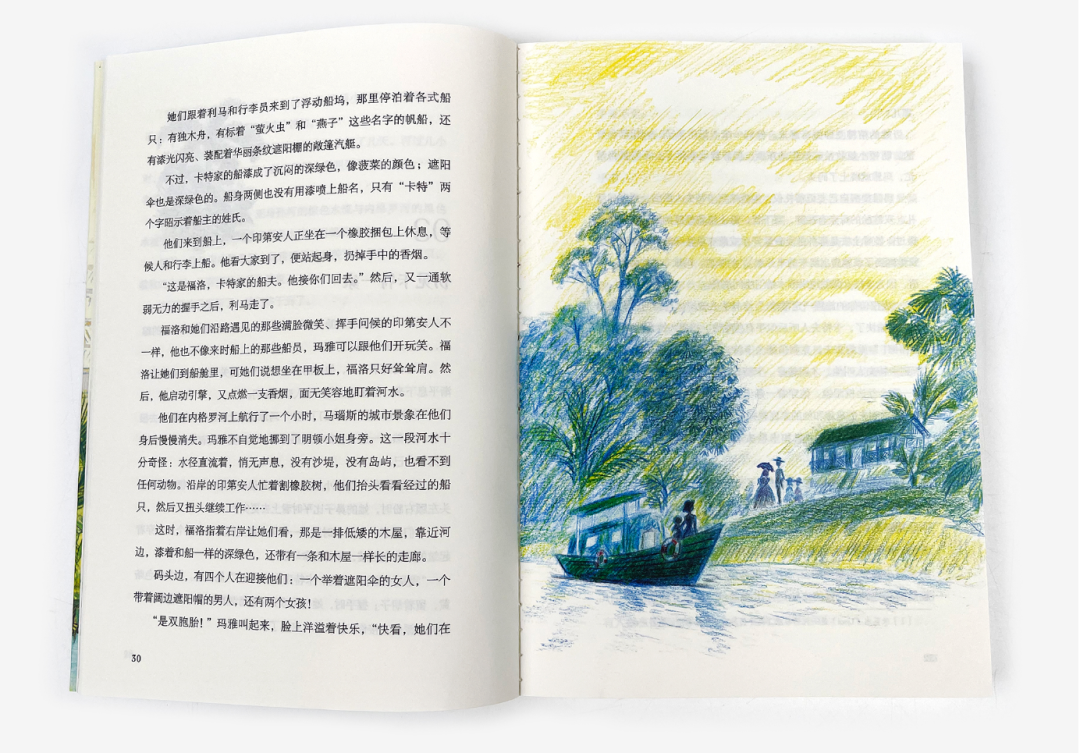 她们跟着利马和行李员来到了浮动船坞，那里停泊着各式船
只：有独木舟，有标着“萤火虫”和“燕子”这些名字的帆船，还
有漆光闪亮、装配着华丽条纹遮阳棚的敞篷汽艇。
不过，卡特家的船漆成了沉闷的深绿色，像菠菜的颜色；遮阳
伞也是深绿色的。船身两侧也没有用漆喷上船名，只有“卡特”两
个字昭示着船主的姓氏。
他们来到船上，一个印第安人正坐在一个橡胶捆包上休息，等
候人和行李上船。他看大家到了，便站起身，扔掉手中的香烟。
“这是福洛，卡特家的船夫。他接你们回去。”然后，又一通软
弱无力的握手之后，利马走了。
福洛和她们沿路遇见的那些满脸微笑、挥手问候的印第安人不
一样，他也不像来时船上的那些船员，玛雅可以跟他们开玩笑。福
洛让她们到船舱里，可她们说想坐在甲板上，福洛只好耸耸肩。然
后，他启动引擎，又点燃一支香烟，面无笑容地盯着河水。
他们在内格罗河上航行了一个小时，马瑙斯的城市景象在他们
身后慢慢消失。玛雅不自觉地挪到了明顿小姐身旁。这一段河水十
分奇怪：水径直流着，悄无声息，没有沙堤，没有岛屿，也看不到
任何动物。沿岸的印第安人忙着割橡胶树，他们抬头看看经过的船
只，然后又扭头继续工作……
这时，福洛指着右岸让她们看，那是一排低矮的木屋，靠近河
边，漆着和船一样的深绿色，还带有一条和木屋一样长的走廊。
码头边，有四个人在迎接他们：一个举着遮阳伞的女人，一个
带着阔边遮阳帽的男人，还有两个女孩！
“是双胞胎！”玛雅叫起来，脸上洋溢着快乐，“快看，她们在
30